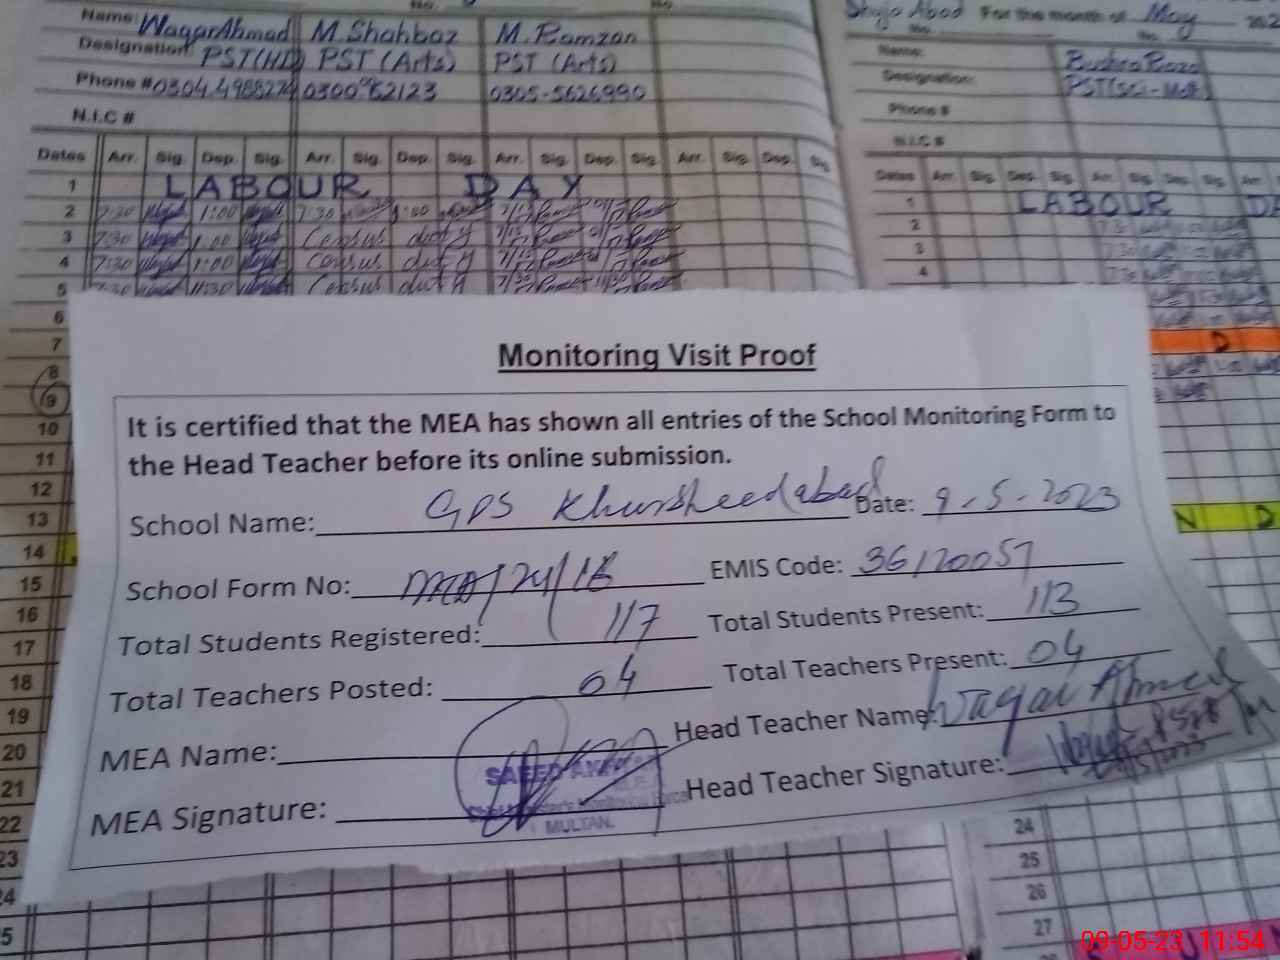 Name: Waqar Ahmad M. Shahbaz M. Ramzan
Designation PST(HT) PST (Arts) PST (Arts)
Phone # 0305-5626990
N.I.C #
Dates Arr. Sig. Dep. Sig. Arr. Sig. Dep. Sig. Arr. Sig. Dep. Sig. Arr. Sig. Dep. Sig
1 LABOUR DAY
2 7:30 1:00 7:30 1:00
3 7:30 1:00 Census duty
4 7:30 1:00 Census duty
5 7:30 11:30 Census duty
6
7
8
9
10
11
12
13
14
15
16
17
18
19
20
21
22
23
24
5
Shuja Abad For the month of May 202
Name:
Designation:
Phone #
N.I.C #
Dates Arr. Sig. Dep. Sig. Arr. Sig. Dep. Sig. Arr
1 LABOUR DA
2
3
4
D
N D
24
25
26
27
Monitoring Visit Proof
It is certified that the MEA has shown all entries of the School Monitoring Form to
the Head Teacher before its online submission.
School Name: GPS Khursheedabad Date: 9-5-2023
School Form No: MEA/24/18 EMIS Code: 36120057
Total Students Registered: 117 Total Students Present: 113
Total Teachers Posted: 04 Total Teachers Present: 04
MEA Name: Head Teacher Name: Waqar Ahmed
MEA Signature: Head Teacher Signature:
SAEED
MULTAN.
09-05-23 11:54